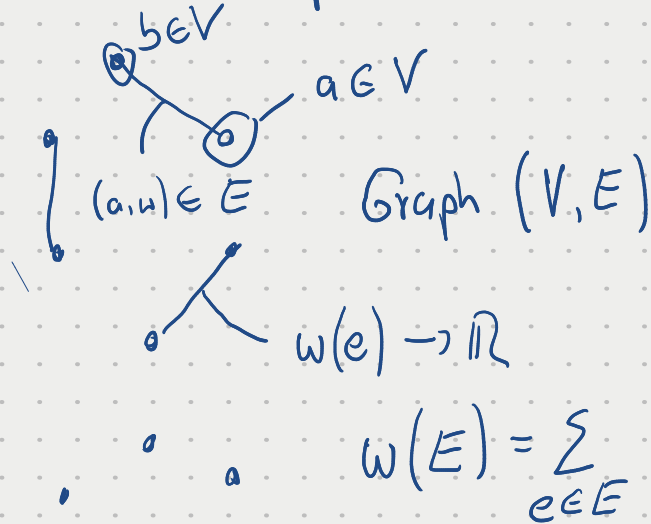 b∈V
a∈V
(a,w)∈E
Graph (V,E)
w(e)→ℝ
w(E)=∑
e∈E